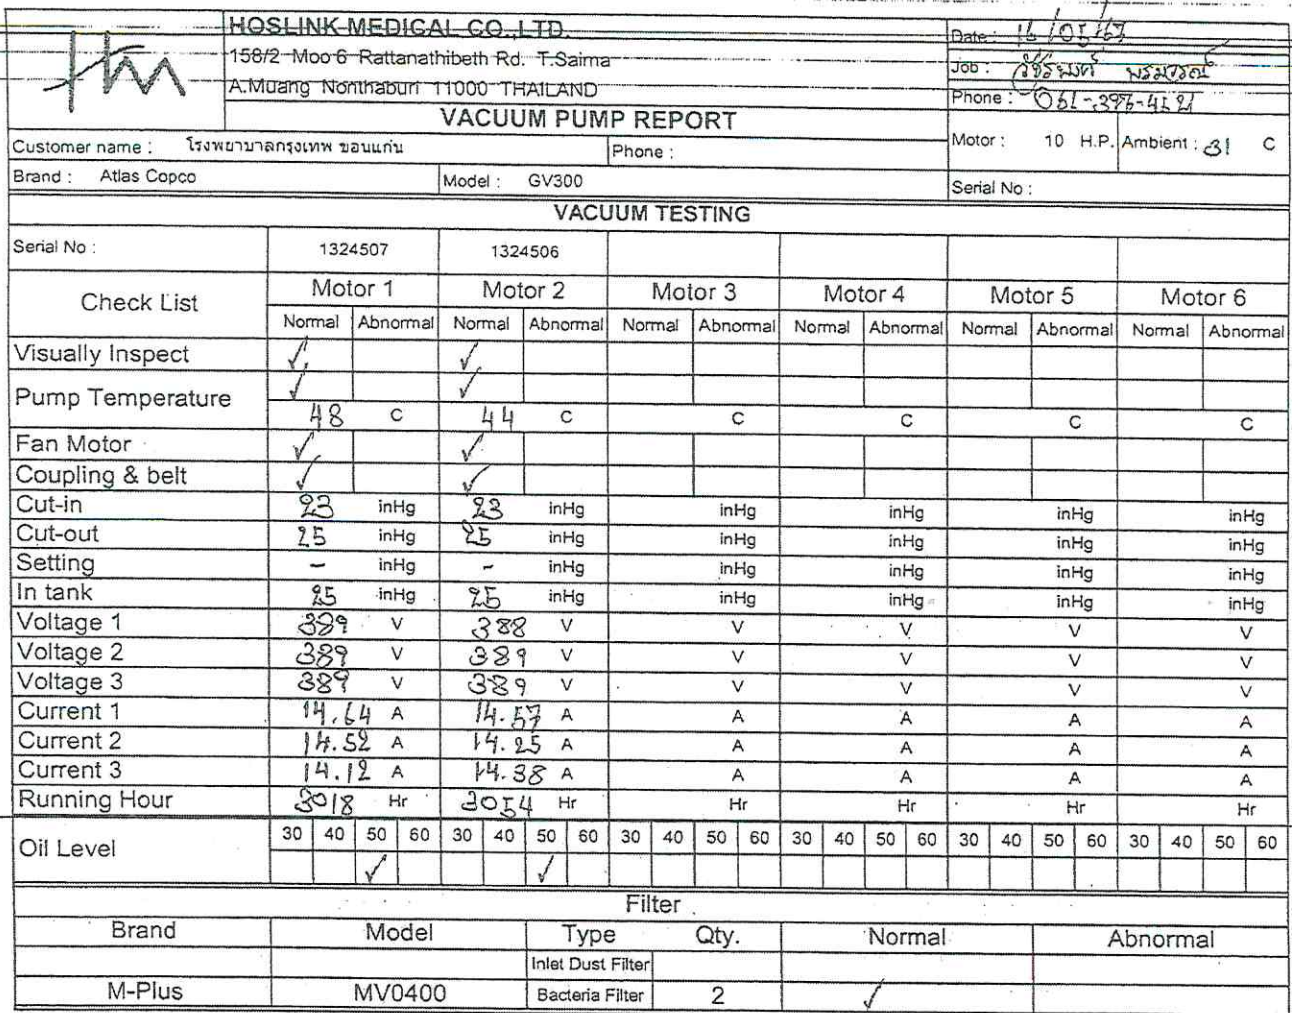 HOSLINK MEDICAL CO.,LTD.
158/2 Moo 6 Rattanathibeth Rd. T.Saima
A.Muang Nonthaburi 11000 THAILAND
Date : 16/05/67
Job :
Phone : 061-396-4121
VACUUM PUMP REPORT
Customer name : โรงพยาบาลกรุงเทพ ขอนแก่น Phone : Motor : 10 H.P. Ambient : 31 C
Brand : Atlas Copco Model : GV300 Serial No :
VACUUM TESTING
Serial No : 1324507 1324506
Check List Motor 1 Motor 2 Motor 3 Motor 4 Motor 5 Motor 6
Normal Abnormal Normal Abnormal Normal Abnormal Normal Abnormal Normal Abnormal Normal Abnormal
Visually Inspect ✓ ✓
Pump Temperature ✓ ✓
48 C 44 C C C C C
Fan Motor ✓ ✓
Coupling & belt ✓ ✓
Cut-in 23 inHg 23 inHg inHg inHg inHg inHg
Cut-out 25 inHg 25 inHg inHg inHg inHg inHg
Setting - inHg - inHg inHg inHg inHg inHg
In tank 25 inHg 25 inHg inHg inHg inHg inHg
Voltage 1 389 V 388 V V V V V
Voltage 2 389 V 389 V V V V V
Voltage 3 389 V 389 V V V V V
Current 1 14.64 A 14.57 A A A A A
Current 2 14.52 A 14.25 A A A A A
Current 3 14.12 A 14.38 A A A A A
Running Hour 3018 Hr 3054 Hr Hr Hr Hr Hr
Oil Level 30 40 50 60 30 40 50 60 30 40 50 60 30 40 50 60 30 40 50 60 30 40 50 60
✓ ✓
Filter
Brand Model Type Qty. Normal Abnormal
Inlet Dust Filter
M-Plus MV0400 Bacteria Filter 2 ✓